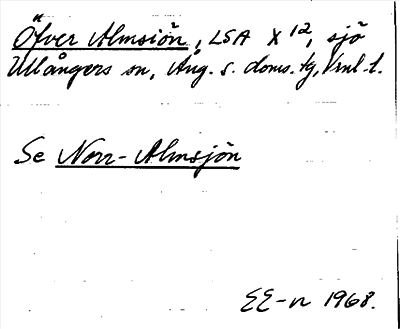 Öfver Almsiön, LSA X 12, sjö
Ullångers sn, Ång. s. doms. tg, Vrnl. t.
Se Norr-Almsjön
EE-n 1968.